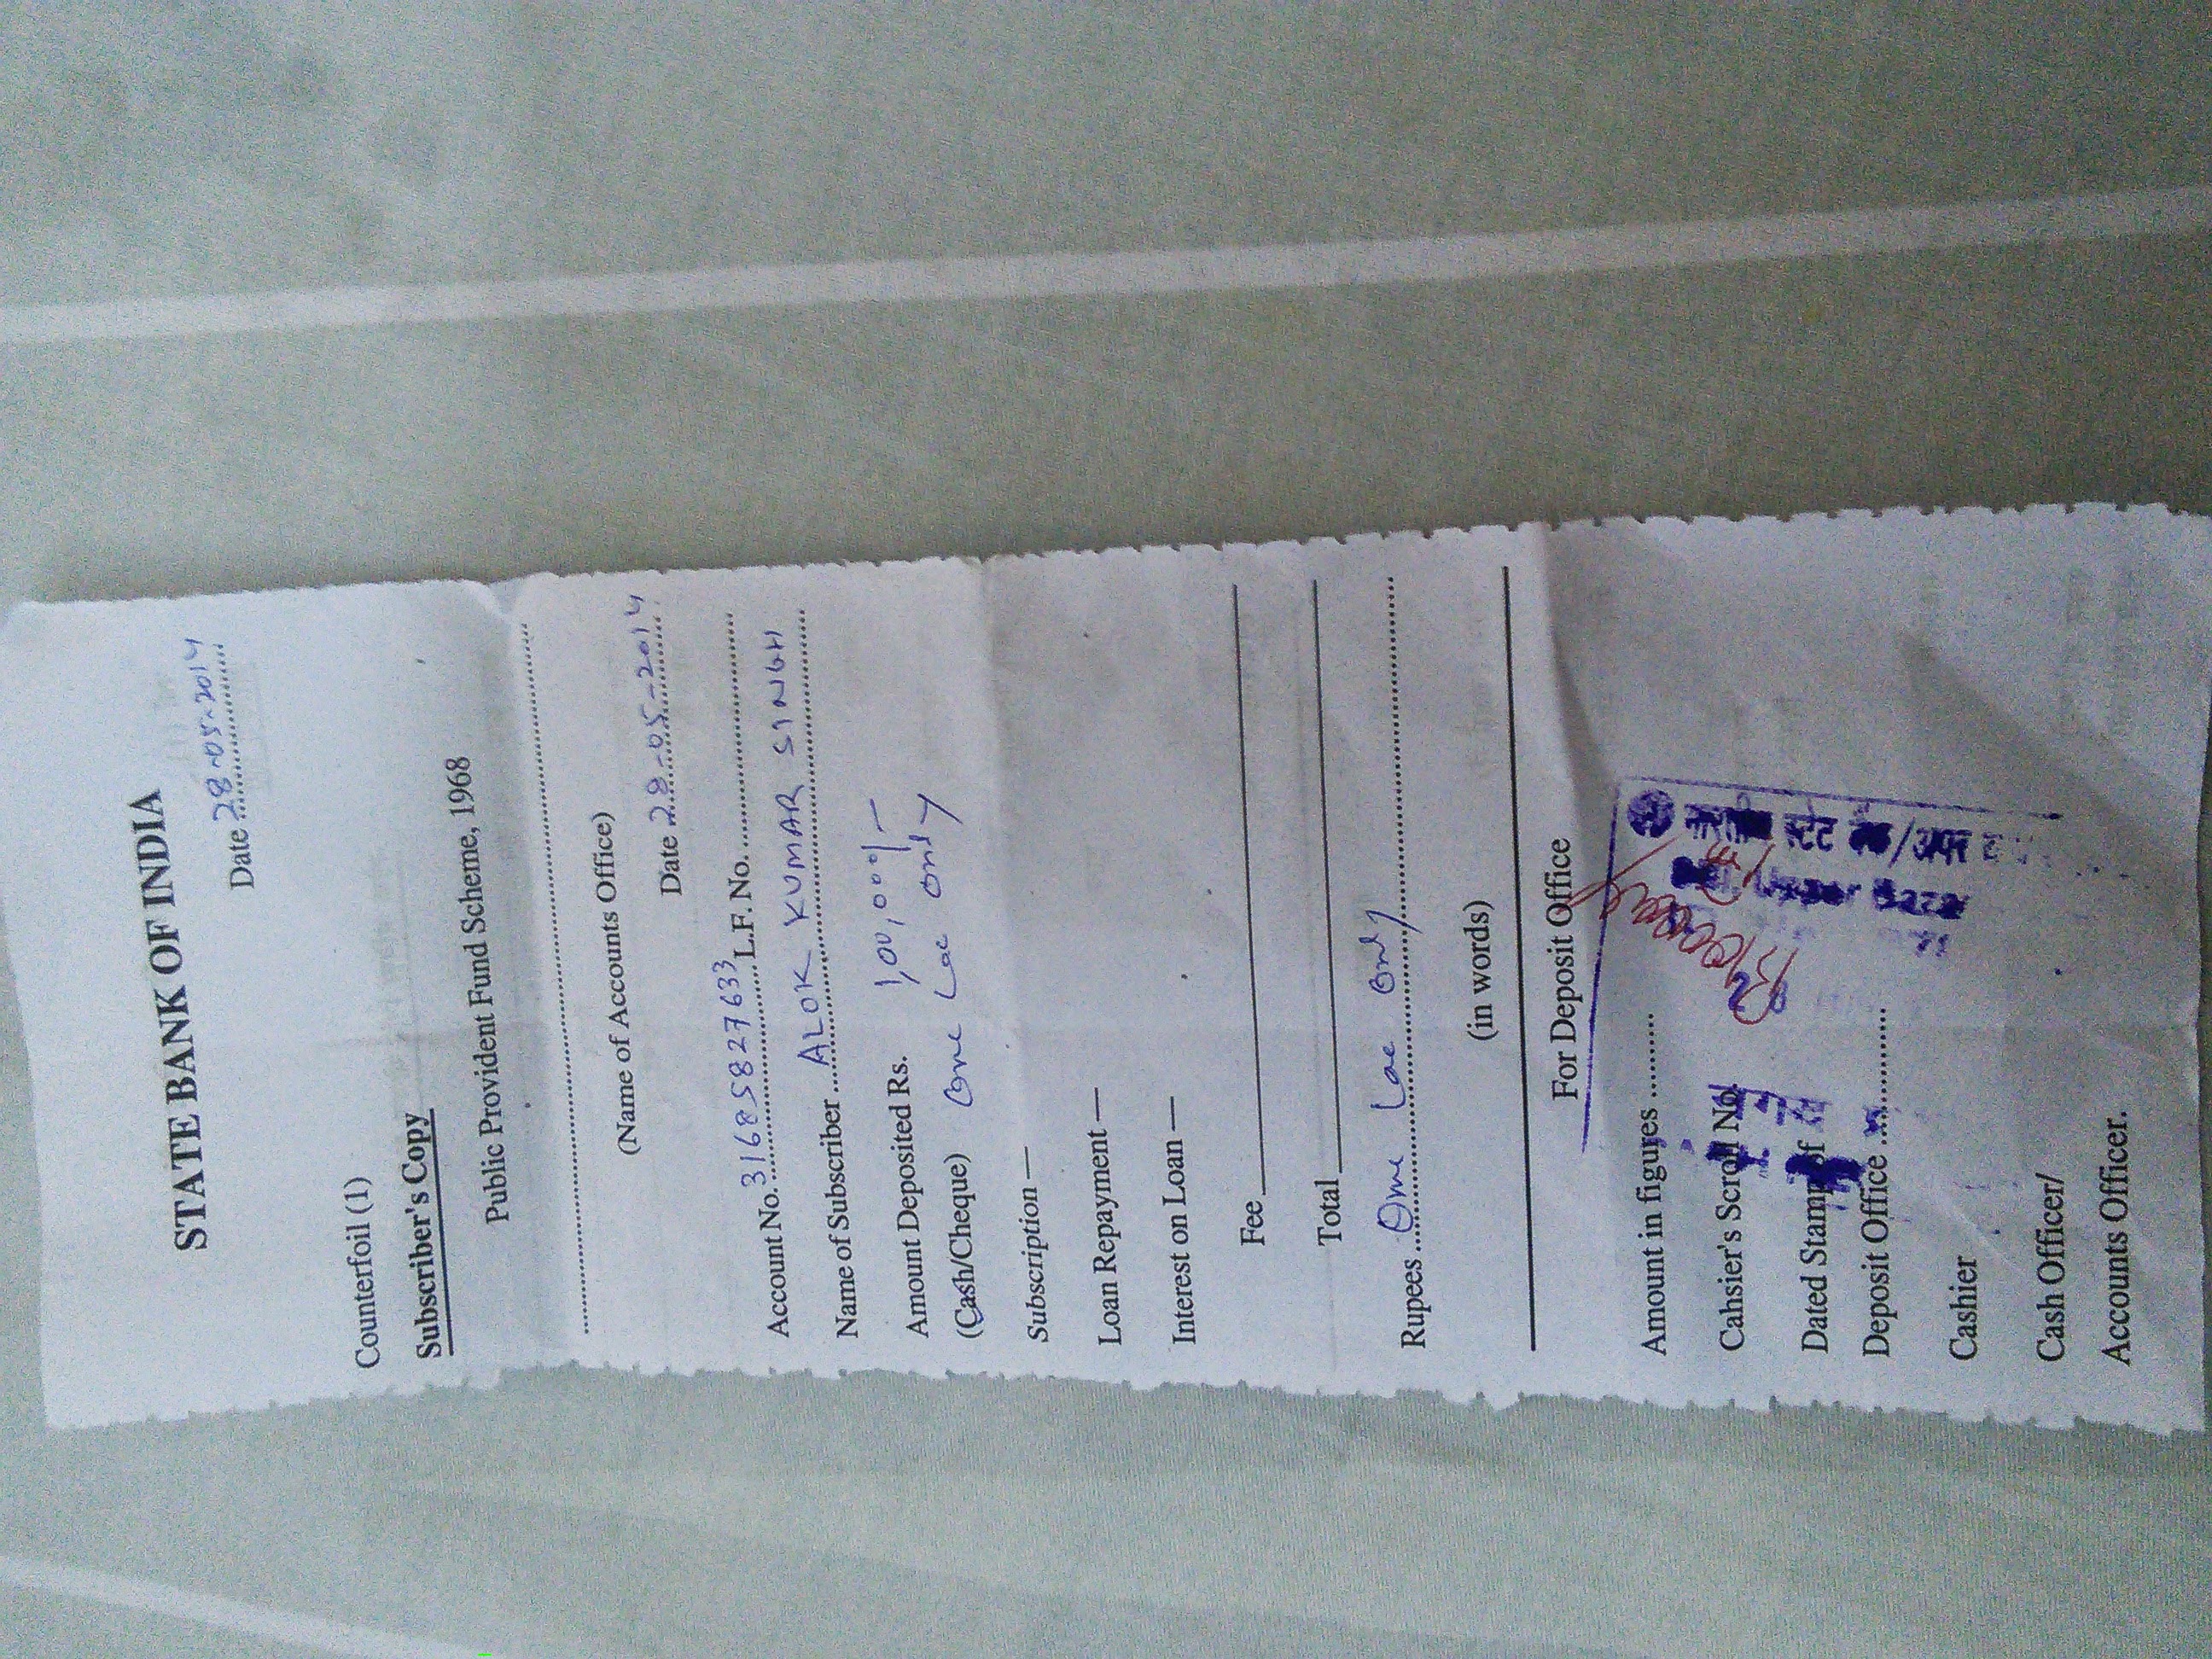 STATE BANK OF INDIA
Date 28-05-2014
Counterfoil (1)
Subscriber's Copy
Public Provident Fund Scheme, 1968
(Name of Accounts Office)
Date 28-05-2014
Account No. 31685827633 L.F. No.
Name of Subscriber ALOK KUMAR SINGH
Amount Deposited Rs. 1,00,000/-
(Cash/Cheque) One Lac only
Subscription —
Loan Repayment —
Interest on Loan —
Fee
Total
Rupees One Lac only
(in words)
For Deposit Office
Amount in figures
Cahsier's Scroll No.
Dated Stamp of
Deposit Office
Cashier
Cash Officer/
Accounts Officer.
भारतीय स्टेट बैंक/अपर
Upper Bazar